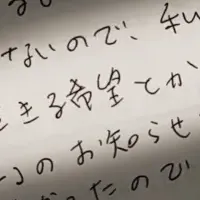 せないので、私
生きる希望とか
のお知らせ
ったので